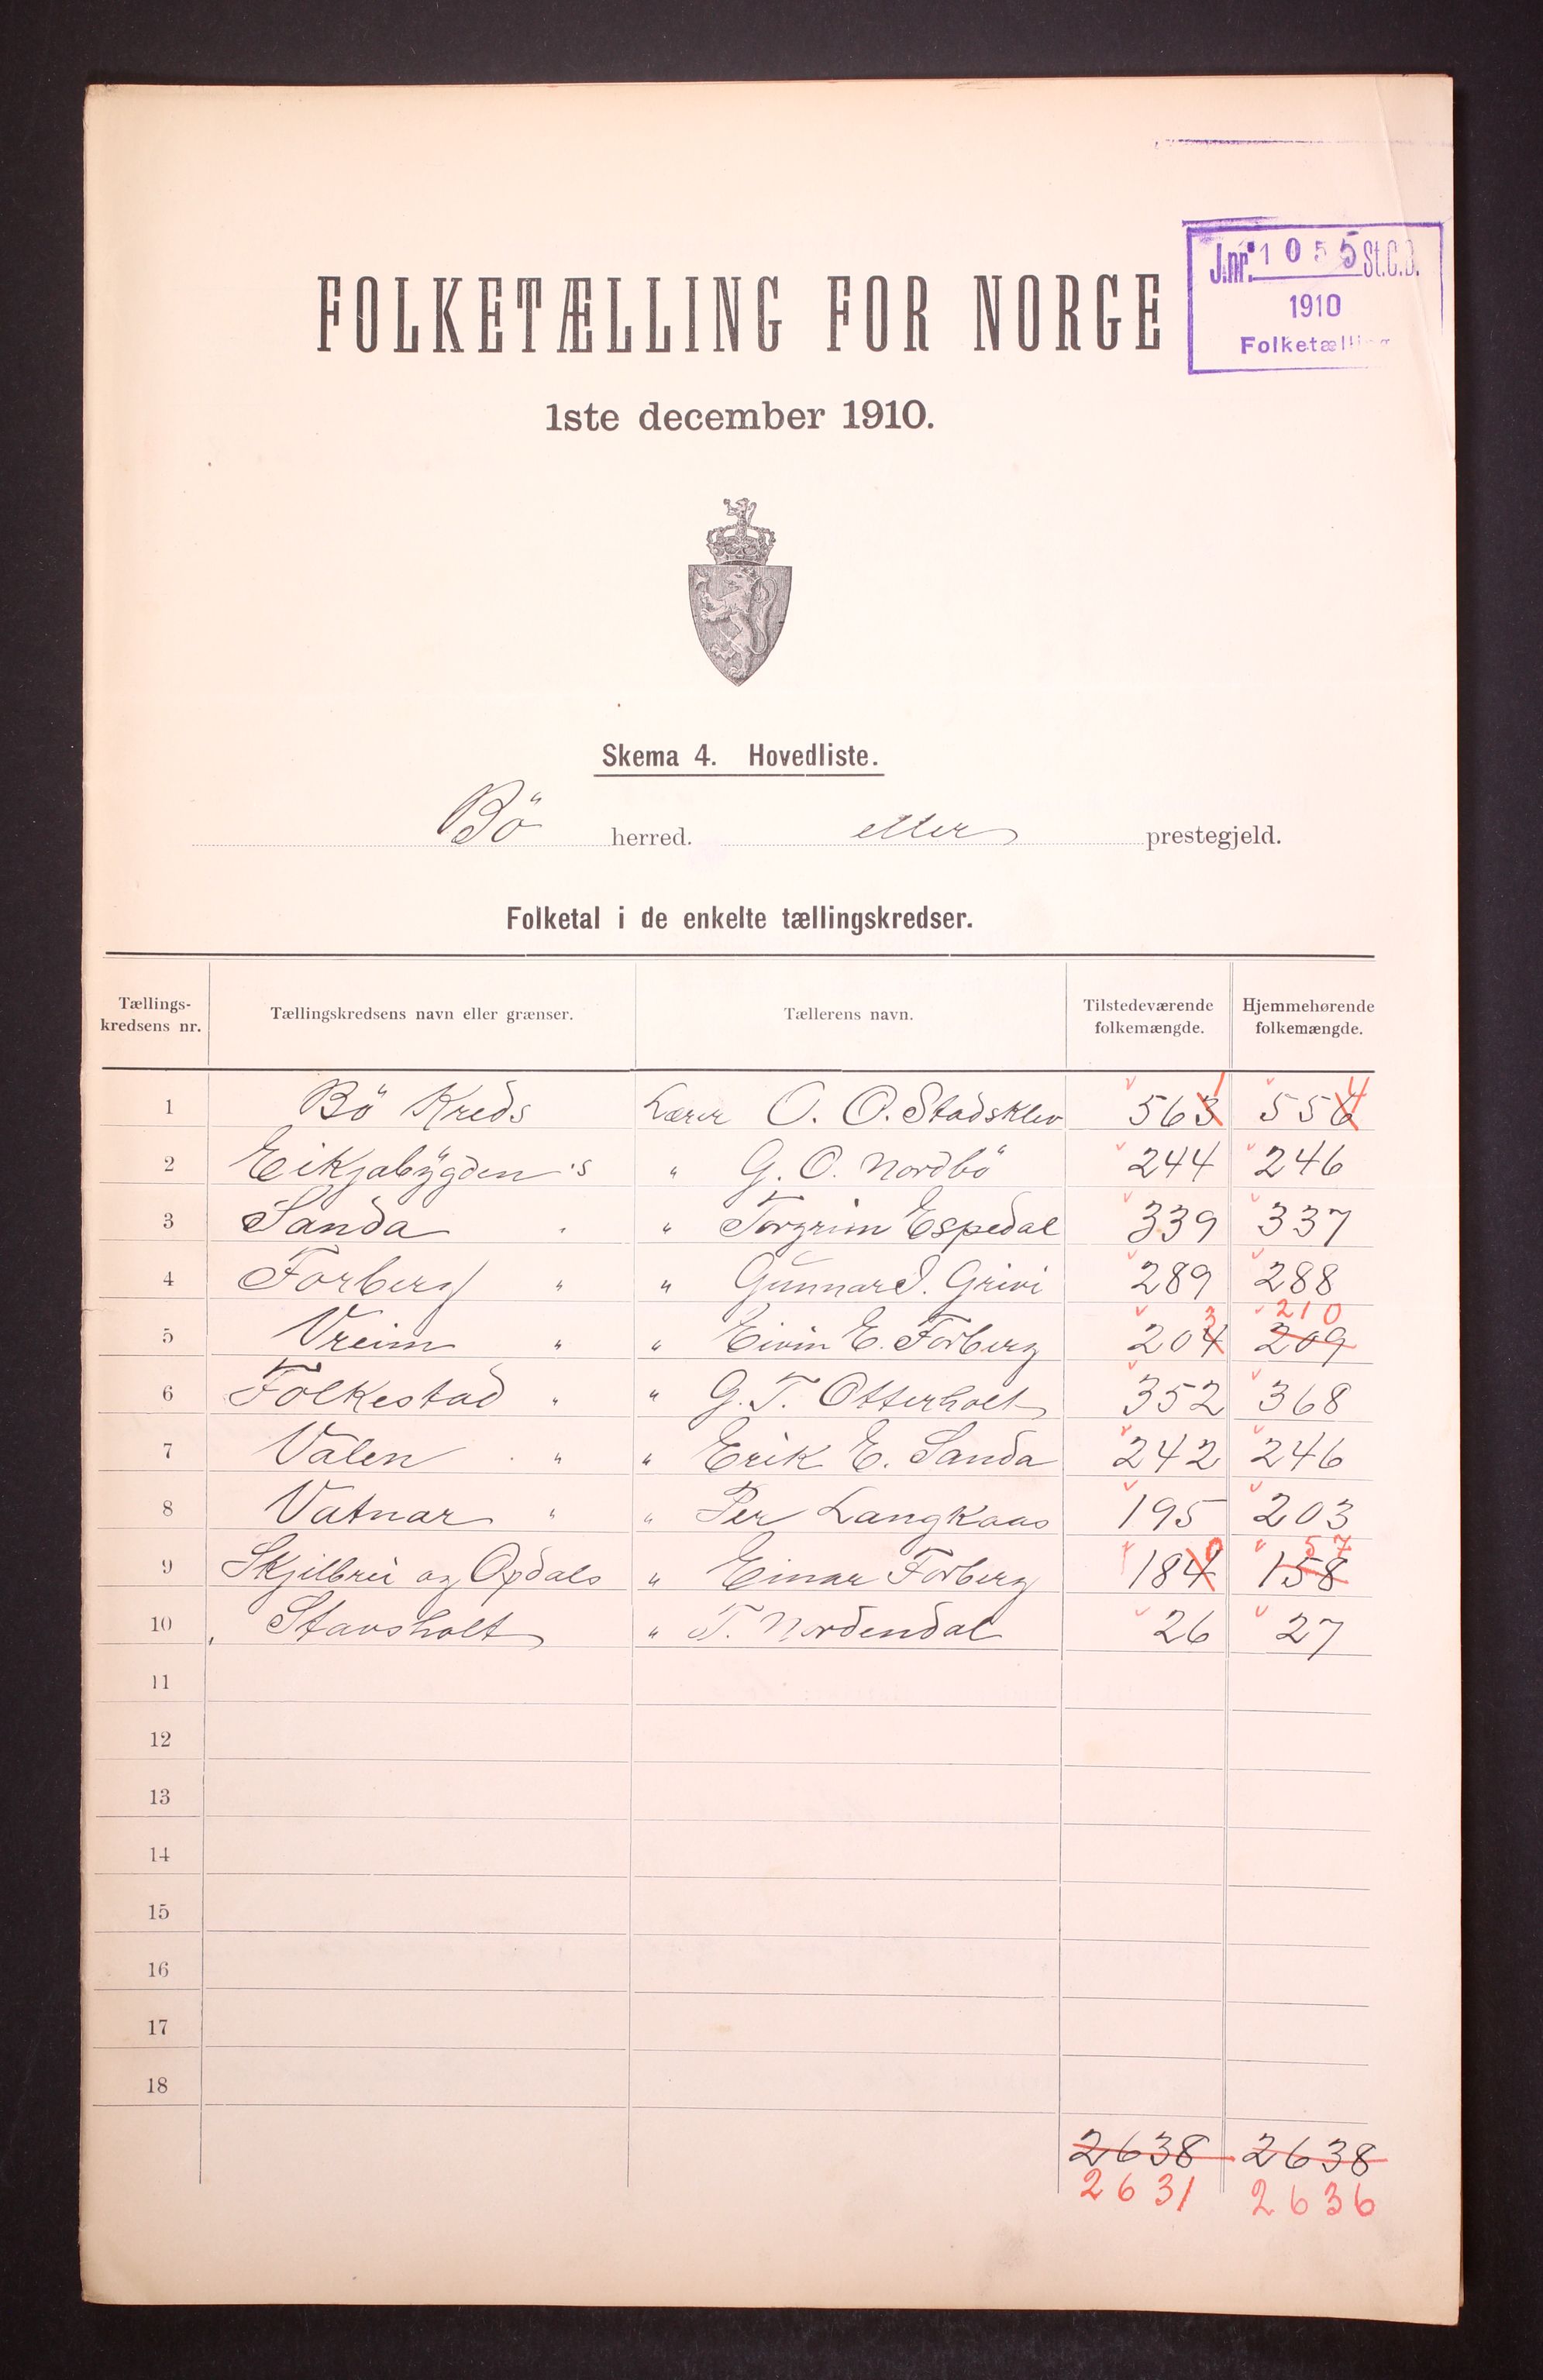 J.nr. 1055 St.C.B.
1910
Folketælling
FOLKETÆLLING FOR NORGE
1ste december 1910.
Skema 4. Hovedliste.
Bö herred. eller prestegjeld.
Folketal i de enkelte tællingskredser.
Tællings-kredsens nr. Tællingskredsens navn eller grænser. Tællerens navn. Tilstedeværende folkemængde. Hjemmehørende folkemængde.
1 Bö Kreds Lærer O. O. Stadsklev 563 1 556 4
2 Eikjabygden 's " G. O. Nordbö 244 246
3 Sanda " " Torgrim Espedal 339 337
4 Forberg " " Gunnar S. Grivi 289 288
5 Vreim " " Eivin E. Forberg 204 3 209 210
6 Folkestad " " G. T. Otterholt 352 368
7 Valen " " Erik E. Sanda 242 246
8 Vatnar " " Per Langkaas 195 203
9 Skjelbrei og Opdals " Einar Forberg 184 0 158 57
10 Stavsholt " T. Nordendal 26 27
11
12
13
14
15
16
17
18
2638 2638
2631 2636